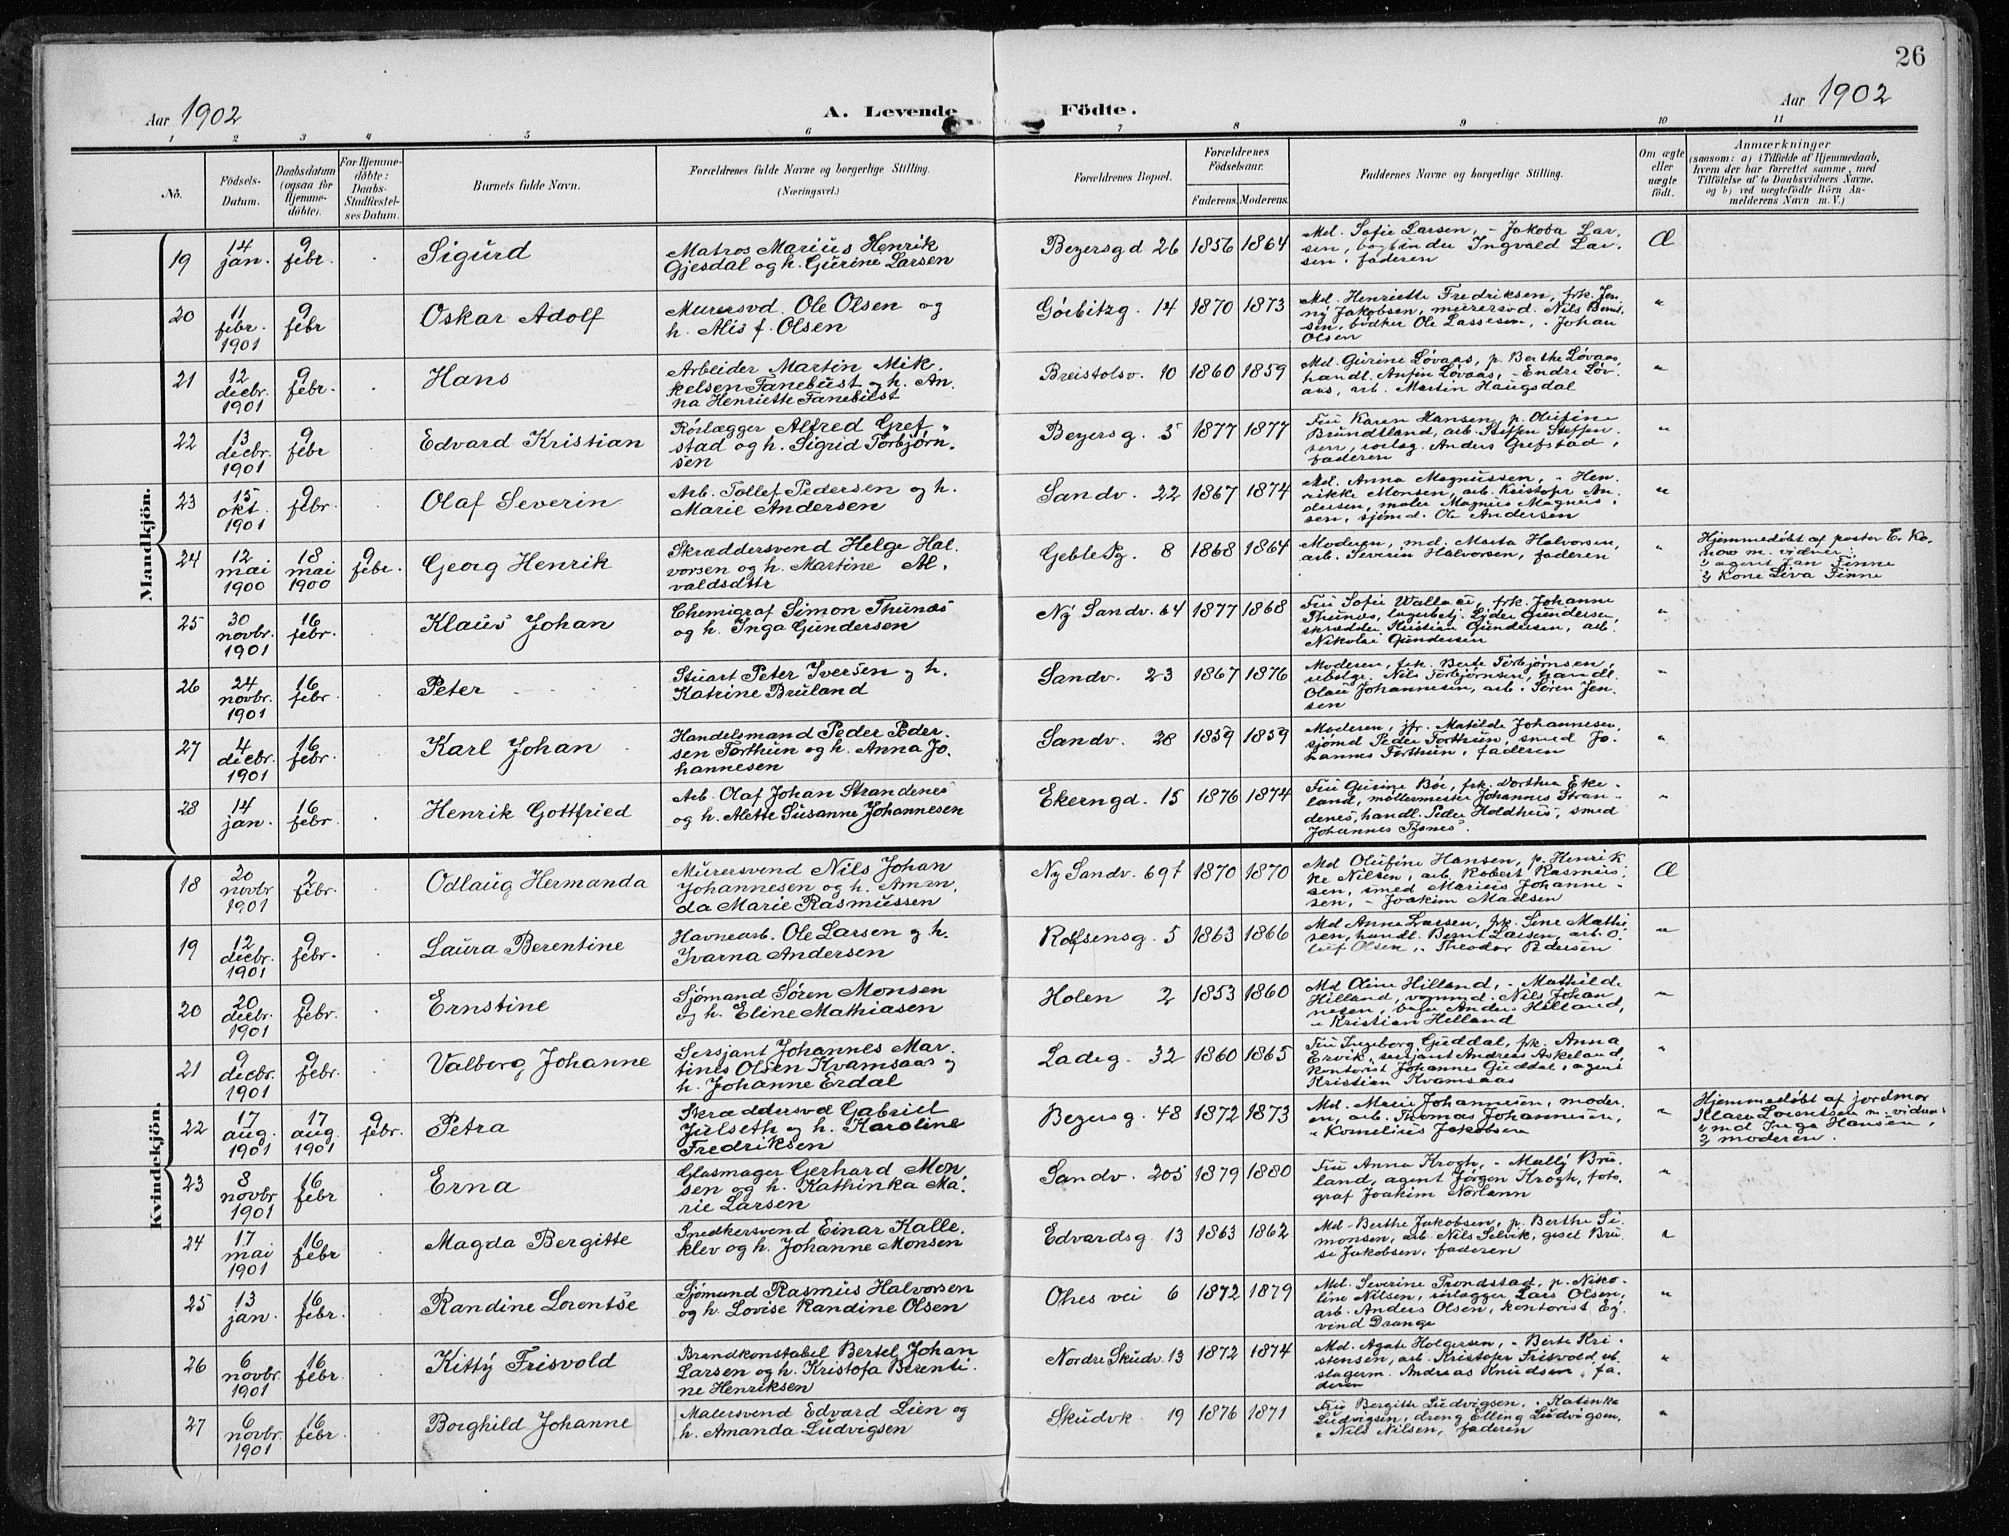 26
Aar 1902
A. Levende Födte.
Aar 1902
1 2 3 4 5 6 7 8 9 10 11
No.
Födsels-
Datum.
Daabsdatum
(ogsaa for
Hjemme-
döbte).
For Hjemme-
döbte:
Daabs-
Stadfæstel-
ses Datum.
Barnets fulde Navn.
Forældrenes fulde Navne og borgerlige Stilling.
(Næringsvei.)
Forældrenes Bopæl.
Forældrenes
Födselsaar.
Faderens. Moderens.
Faddernes Navne og borgerlige Stilling.
Om ægte
eller
uægte
födt.
Anmærkninger
(saasom: a) i Tilfælde af Hjemmedaab,
hvem der har forrettet samme, med
Tilföielse af to Daabsvidners Navne,
og b) ved uægtefödte Börn An-
melderens Navn m. V.)
Mandkjön.
19
14
jan.
9
febr.
Sigurd
Matros Marius Henrik
Gjesdal og h. Gurine Larsen
Bezersgd 26
1856
1864
Md. Sofie Larsen, - Jakoba Lar,
sen, bogbinder Ingvald Lar-
sen, faderen
Æ
20
11
febr.
1901
9
febr
Oskar Adolf
Murersvd. Ole Olsen og
h. Alis f. Olsen
Görbitzg. 14
1870
1873
Md. Henriette Fredriksen, frk. Jen-
ny Jakobsen, murersvd. Nils Bent-
sen, bødker Ole Lassesen, - Johan
Olsen
"
21
12
decbr.
1901
9
febr.
Hans
Arbeider Martin Mik.
kelsen Tanebust og h. An.
na Henriette Tanebust
Breistolsv. 10
1860
1859
Md. Gurine Løvaas, p. Berthe Løvaas
handl. Anfin Løvaas, - Endre Løv-
aas, arb. Martin Haugsdal
"
22
13
decbr.
1901
9
febr
Edvard Kristian
Rørlægger Alfred Gref-
stad og h. Sigrid Torbjørn-
sen
Bezersg. 5
1877
1877
Fru Karen Hansen, p. Olufine
Brundtland, arb. Steffen Steffen-
sen, rørlæg. Anders Grefstad,
faderen
"
23
15
okt.
1901
9
febr.
Olaf Severin
Arb. Tollef Pedersen og h.
Marie Andersen
Sandv. 22
1867
1874
Md. Anna Magnussen, - Hen-
rikke Monsen, arb. Kristofer An-
dersen, maler Magnus Magnus-
sen, sjømd. Ole Andersen
"
24
12
mai
1900
18
mai
1900
9
febr.
Georg Henrik
Skræddersvend Helge Hal.
vorsen og h. Martine Al.
valdsdttr
Geblesg. 8
1868
1864
Moderen, md. Marta Halvorsen,
arb. Severin Halvorsen, faderen
"
Hjemmedøbt af pastor C. Ko-
now m. vidner:
1) agent Jan Finne
2) Kone Liva Finne
25
30
novbr.
1901
16
febr.
Klaus Johan
Chemigraf Simon Thunæs
og h. Inga Gundersen
Ny Sandv. 64
1877
1868
Fru Sofie Wallace, frk. Johanne
Thunæs, lagerbetj. Lyder Gundersen,
skrædder Kristian Gundersen, arb.
Nikolai Gundersen
"
26
24
novbr.
1901
16
febr.
Peter
Stuart Peter Iversen og h.
Katrine Bruland
Sandv. 23
1867
1876
Moderen, frk. Berte Torbjørnsen,
Nils Torbjørnsen, handl.
Olau Johannesen, arb. Søren Jen-
sen
"
27
4
decbr.
1901
16
febr.
Karl Johan
Handelsmand Peder Peder-
sen Torthun og h. Anna Jo.
hannesen
Sandv. 28
1859
1859
Moderen, jfr. Matilde Johannesen,
sjømd Peder Torthun, smed Jo-
hannes Torthun, faderen
"
28
14
jan.
16
febr.
Henrik Gottfried
Arb. Olaf Johan Strandenes
og h. Alette Susanne Johannesen
Ekerngd. 15
1876
1874
Fru Gurine Bøe, frk. Dorthea Eke-
land, møllermester Johannes Stran-
denes, handl. Peder Holdhus, smed
Johannes Tysnes.
"
Kvindekjön.
18
20
novbr
1901
2
febr.
Odlaug Hermanda
Murersvend Nils Johan
Johannesen og h. Aman.
da Marie Rasmussen
Ny Sandv. 69f
1870
1870
Md Olufine Hansen, p. Henrik-
ke Nilsen, arb. Robert Rasmus-
sen, smed Marius Johanne-
sen, - Joakim Madsen
Æ
19
12
decbr.
1901
9
febr.
Laura Berentine
Havnearb. Ole Larsen og h.
Ivarna Andersen
Rolfsensg. 5
1863
1866
Md Anne Larsen, frk. Sine Mathi-
sen, handl. Bernt Larsen, arb. O.
luf Olsen, - Theodor Pedersen
"
20
20
decbr.
1901
9
febr.
Ernstine
Sjømand Søren Monsen
og h. Eline Mathiasen
Holen 2
1853
1860
Md Oline Hilland, - Mathilde
Hilland, vognmd. Nils Johan
nesen, Anders Hilland,
" Kristian Helland
"
21
9
decbr.
1901
9
febr.
Valborg Johanne
Sersjant Johannes Mar.
tines Olsen Kvamsaas og
h. Johanne Erdal
Ladeg. 32
1860
1865
Fru Ingeborg Guddal, frk. Anna
Ervik, sersjant Andreas Askeland,
kontorist Johannes Guddal, agent
Kristian Kvamsaas
"
22
17
aug.
1901
17
aug.
1901
9
febr.
Petra
Skræddersvd Gabriel
Julseth og h. Karoline
Fredriksen
Bezersg. 48
1872
1873
Md. Marie Johannesen, moder-
en, arb. Thomas Johannesen,
" Kornelius Jakobsen
"
Hjemmedøbt af jordmor
Klara Lorentsen m. vidner:
1) md Inga Hansen,
2) moderen.
23
8
novbr
1901
16
febr
Erna
Glasmager Gerhard Mon
sen og h. Kathinka Ma.
rie Larsen
Sandv. 205
1879
1880
Fru Anna Krogh, - Mally Bru-
land, agent Jørgen Krogh, foto-
graf Joakim Norlann
"
24
17
mai
1901
16
febr
Magda Bergitte
Snedkersvend Einar Kalle.
klev og h. Johanne Monsen
Edvardsg. 13
1863
1862
Md. Berthe Jakobsen, p. Berthe Si-
monsen, arb. Nils Selvik, gesel Bru-
se Jakobsen, faderen
"
25
13
jan.
16
febr.
Randine Lorentse
Sjømand Rasmus Halvorsen
og h. Lovise Randine Olsen
Ohes vei 6
1872
1879
Md. Severine Trondstad, p. Niko-
line Nilsen, rørlægger Lars Olsen,
arb. Anders Olsen, kontorist Ey-
vind Drange
"
26
6
novbr.
1901
16
febr.
Kitty Frisvold
Brandkonstabel Bertel Johan
Larsen og h. Kristofa Berenti.
ne Henriksen
Nordre Skudv. 13
1872
1874
Md. Agate Holgersen, - Berte Kri-
stensen, arb. Kristofer Frisvold, ut-
slagerm. Andreas Knudsen, fa-
deren
"
27
6
novbr.
1901
16
febr
Borghild Johanne
Malersvend Edvard Lien og
h. Amanda Ludvigsen
Skudvk 19
1876
1871
Fru Bergitte Ludvigsen, - Katinka
Ludvigsen, dreng Elling Ludvigsen,
" Nils Nilsen, faderen
"